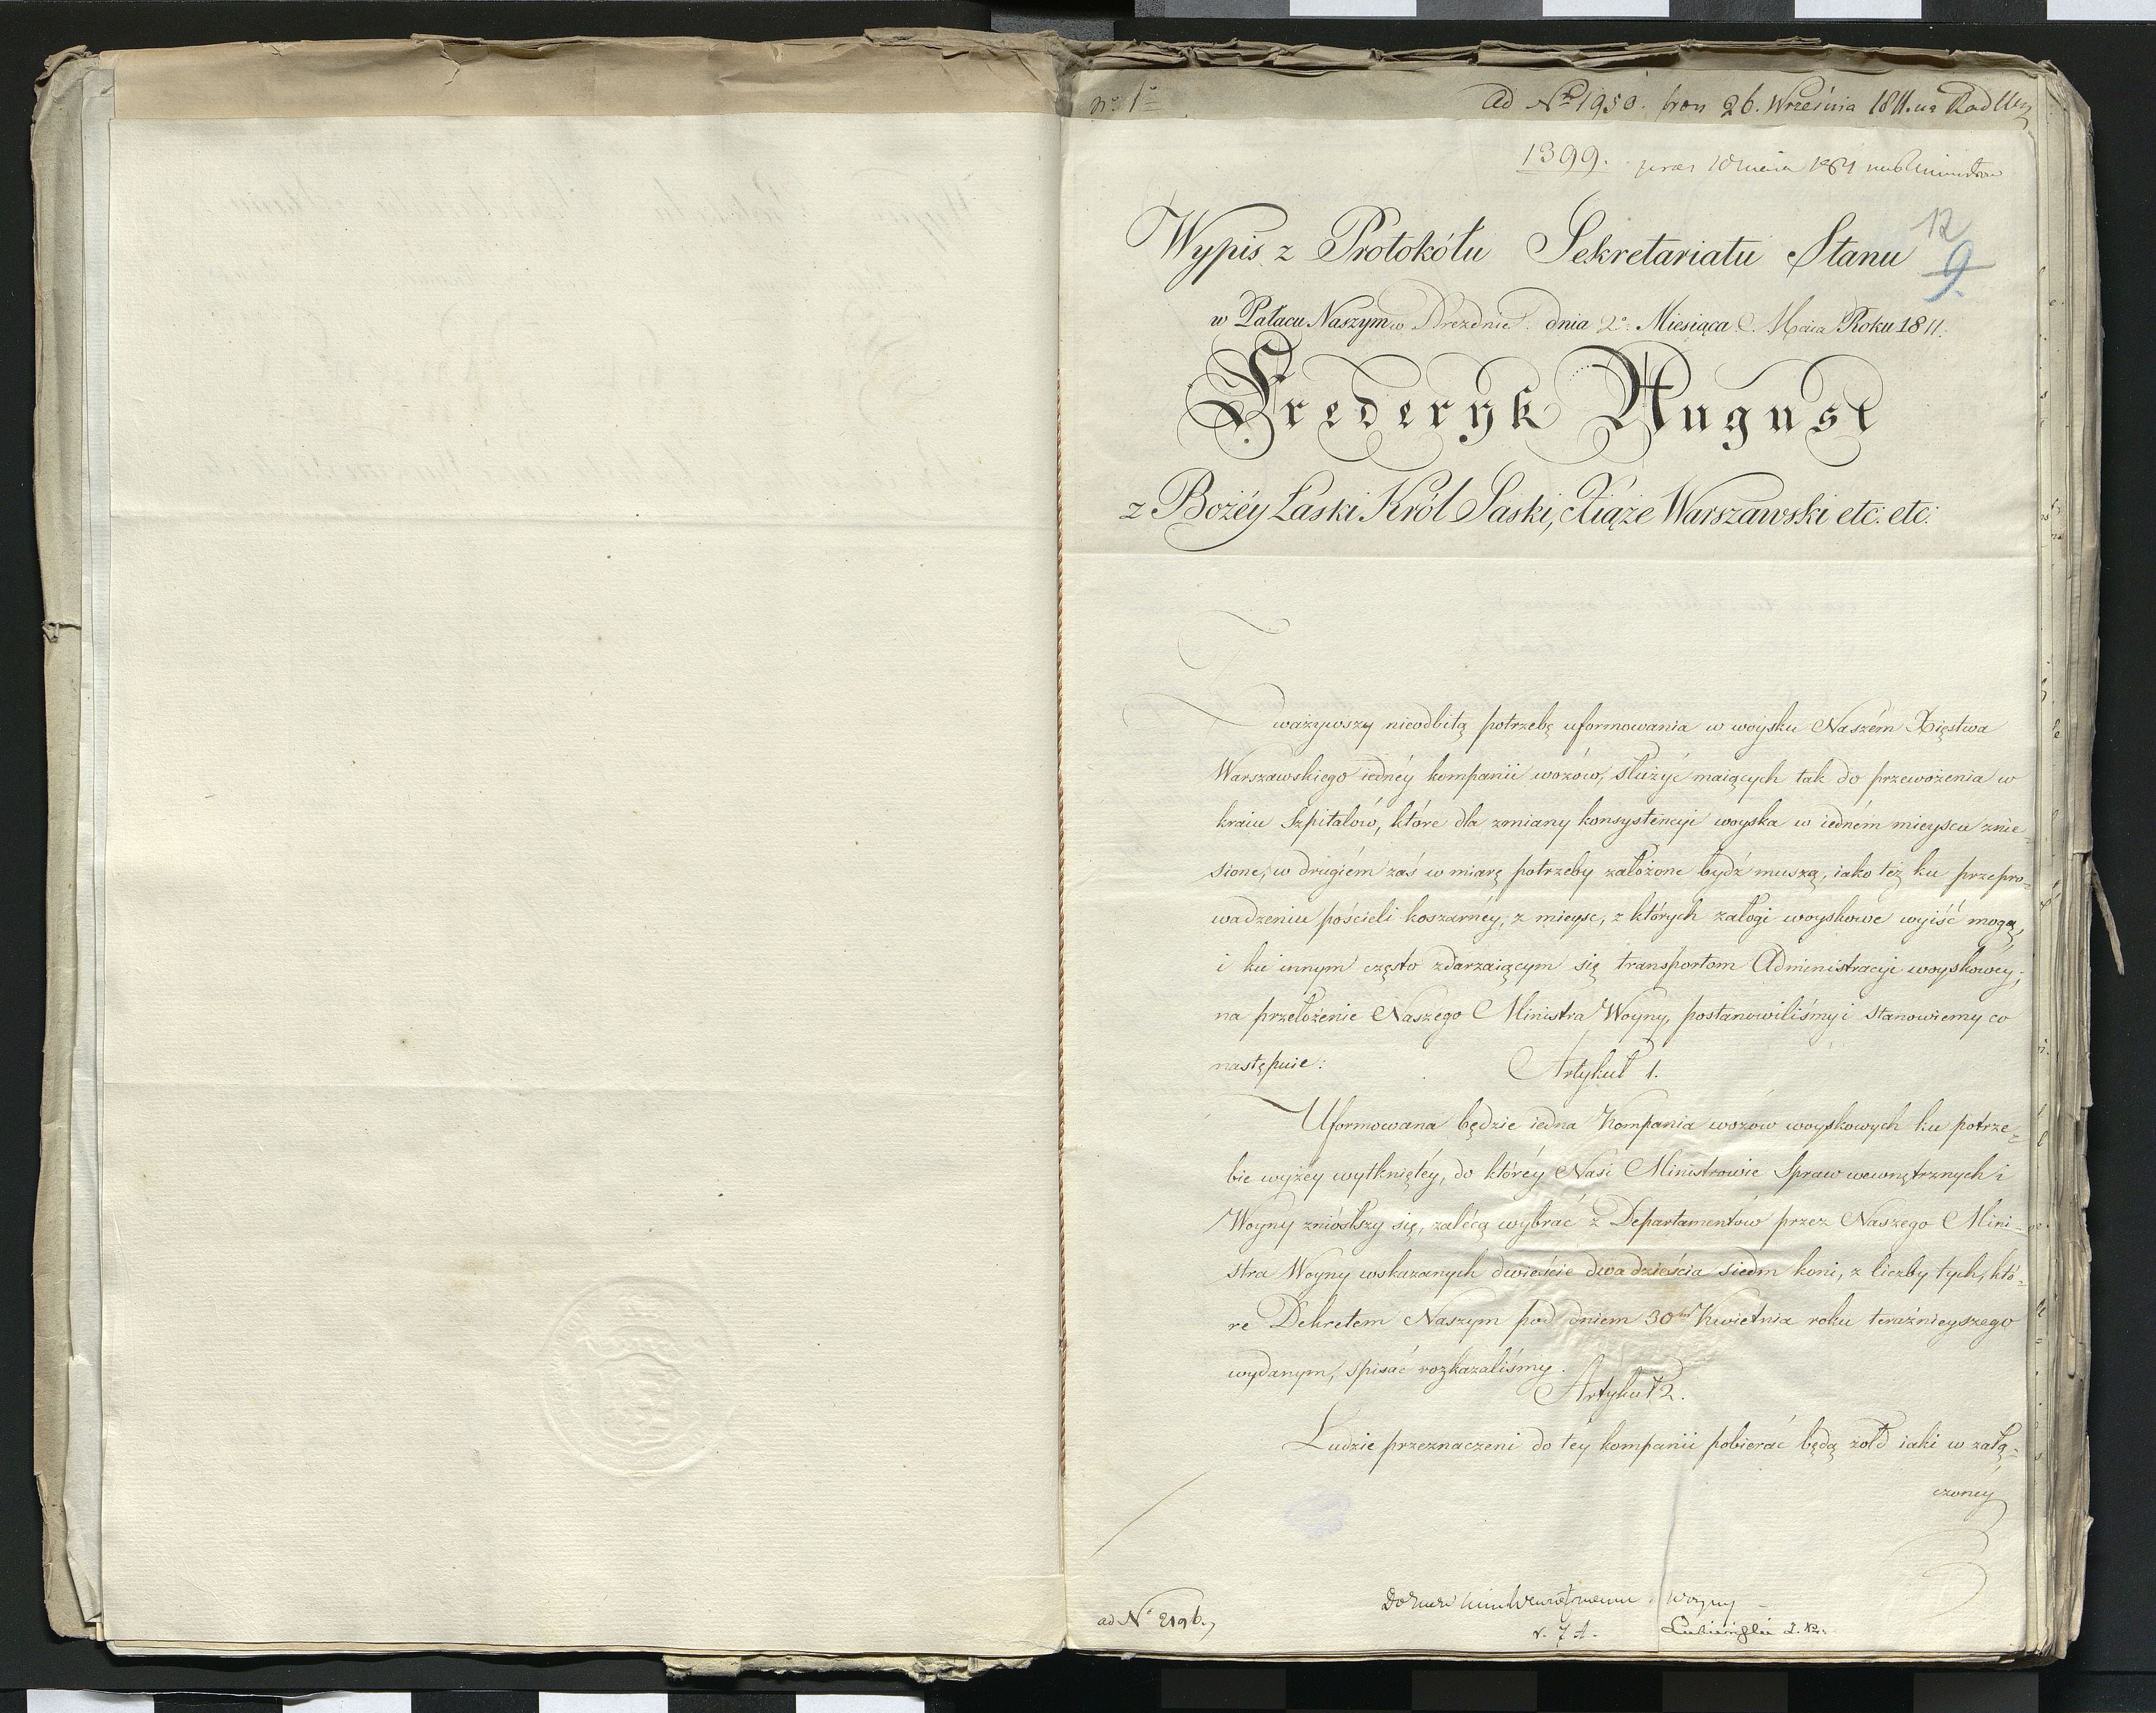 n<sup>o</sup> 1<sup>o</sup>
ad N<sup>o</sup> 1950. 26. Września 1811.
1399.
12
9.
Wypis z Protokółu Sekretariatu Stanu
w Pałacu Naszym w Dreźnie. dnia 2<sup>o</sup> Miesiąca Maia Roku 1811.
Frederyk August
z Bożéy Łaski Król Saski, Xiąże Warszawski etc: etc:
Zważywszy nieodbitą potrzebę uformowania w woysku Naszém Xięstwa
Warszawskiego iednéy kompanii wozów, służyć maiących tak do przewożenia w
kraiu Szpitalów, które dla zmiany konsystencyi woyska w iedném mieyscu znie=
sione, w drugiém zaś w miarę potrzeby założone bydź muszą, iako też ku przepro=
wadzeniu pościeli koszarnéy, z mieysc, z których załogi woyskowe wyiść mogą,
i ku innym często zdarzaiącym się transportom Administracyi woyskowéy;
na przełożenie Naszego Ministra Woyny, postanowiliśmy i stanowiemy co
następuie:
Artykuł 1.
Uformowana będzie iedna Kompania wozów woyskowych ku potrze=
bie wyżéy wytkniętéy, do któréy Nasi Ministrowie Spraw wewnętrznych i
Woyny zniósłszy się, zalécą wybrać z Departamentów przez Naszego Mini=
stra Woyny wskazanych dwieście dwadzieścia siedm koni, z liczby tych, któ=
re Dekretem Naszym pod dniem 30 Kwietnia roku teraźnieyszego
wydanym, spisać rozkazaliśmy.
Artykuł 2.
Ludzie przeznaczeni do téy kompanii pobierać będą żołd iaki w załą=
czonéy
ad N<sup>o</sup> 2196.
Woyny